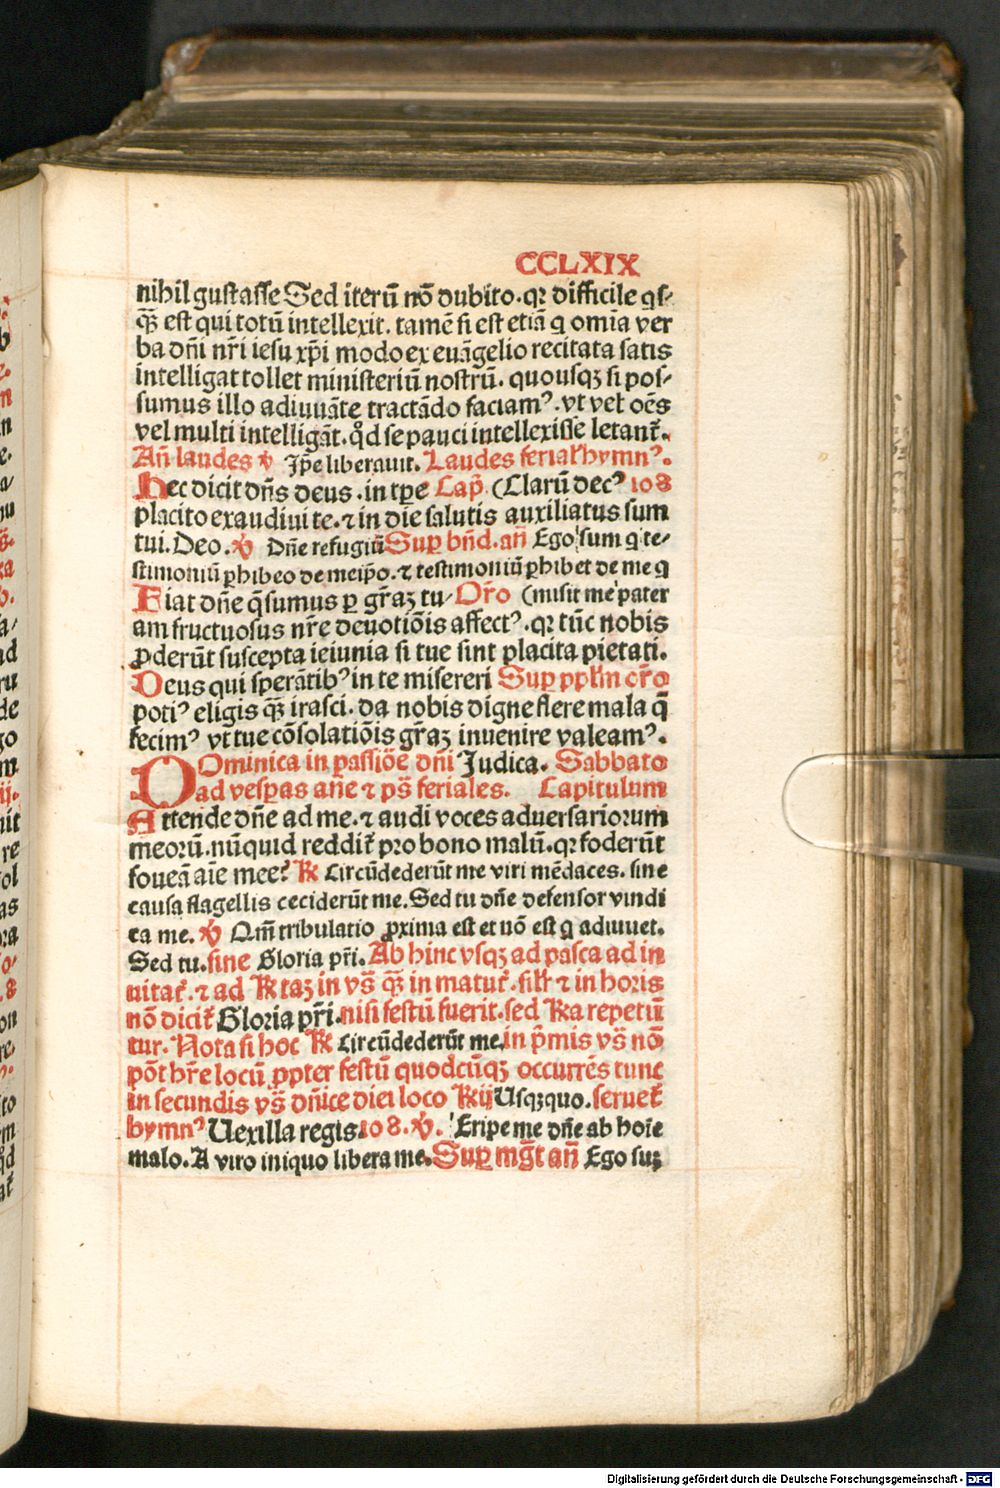 CCLXIX
nihil gustasse Sed iterū nō dubito. qꝛ difficile qs⸗
qꝫ̄ est qui totū intellexit. tamē si est etiā q om̄ia ver
ba dn̄i nr̄i iesu xp̄i modo ex euāgelio recitata satis
intelligat tollet ministeriū nostrū. quousqꝫ si pos⸗
sumus illo adiuuāte tractādo faciamꝰ. vt vel oēs
vel multi intelligāt. qd̊ se pauci intellexisse letant᷑.
An̄ laudes ꝟ Ip̄e liberauit. Laudes ferial' hymnꝰ.
Hec dicit dn̄s deus. in tp̄e Cap̄. (Clarū decꝰ 108
placito exaudiui te. ⁊ in die salutis auxiliatus sum
tui. Deo. ꝟ Dn̄e refugiū Suꝑ bn̄d. an̄ Ego sum q te⸗
stimoniū ꝑhibeo de meip̄o. ⁊ testimoniū ꝑhibet de me q
Fiat dn̄e q̄sumus ꝑ gr̄aꝫ tu⸗ Or̄o (misit me pater
am fructuosus nr̄e deuotiōis affectꝰ. qꝛ tūc nobis
ꝓderūt suscepta ieiunia si tue sint placita pietati.
Deus qui sperātibꝰ in te misereri Suꝑ ppl'm or̄o
potiꝰ eligis qꝫ̄ irasci. da nobis digne flere mala q̄
fecimꝰ vt tue cōsolatiōis gr̄aꝫ inuenire valeamꝰ.
DOminica in passiōe dn̄i Judica. Sabbato
ad vesꝑas an̄e ⁊ pſ̄ feriales. Capitulum
Attende dn̄e ad me. ⁊ audi voces aduersariorum
meorū. nūquid reddit᷑ pro bono malū. qꝛ foderūt
foueā aīe mee? ℟ Circūdederūt me viri mēdaces. sine
causa flagellis ceciderūt me. Sed tu dn̄e defensor vindi
ca me. ꝟ Qm̄ tribulatio ꝓxima est et nō est q adiuuet.
Sed tu. sine Gloria pr̄i. Ab hinc vsqꝫ ad pasca ad in
uitat᷑. ⁊ ad ℟taꝫ in vſ̄ qꝫ̄ in matut᷑. sil'r ⁊ in horis
nō dicit᷑ Gloria pr̄i. nisi festū fuerit. sed ℟a repetū
tur. Nota si hoc ℟ Circūdederūt me. in p̄mis vſ̄ nō
pōt hr̄e locū ꝓpter festū quodcūqꝫ occurrēs tunc
in secundis vſ̄ dn̄ice diei loco ℟ij Usqꝫquo. seruet᷑
hymnꝰ Uexilla regis 108. ꝟ. Eripe me dn̄e ab hoīe
malo. A viro iniquo libera me. Suꝑ mḡt an̄ Ego suꝫ
Digitalisierung gefördert durch die Deutsche Forschungsgemeinschaft - DFG